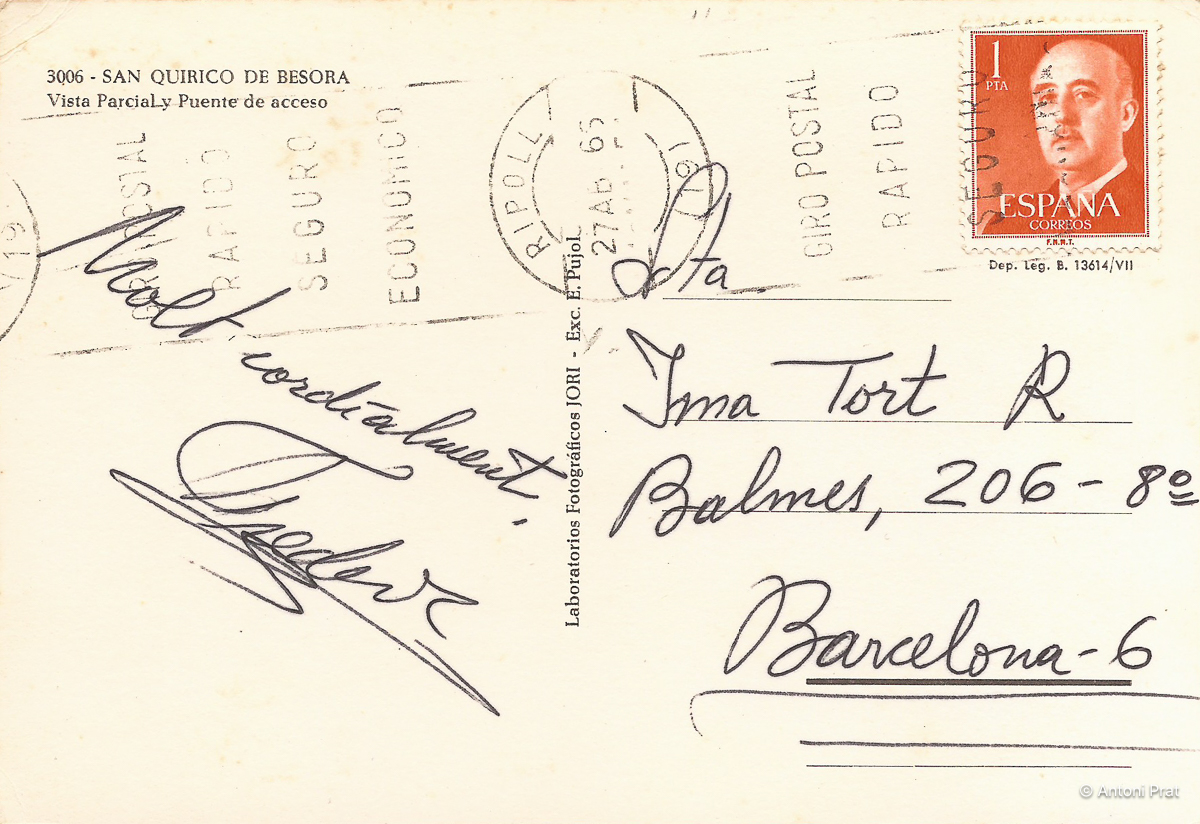 3006 - SAN QUIRICO DE BESORA
Vista Parcial y Puente de acceso
GIRO POSTAL
RAPIDO
SEGURO
ECONOMICO
RIPOLL
27 AB 65
(191
GIRO POSTAL
RAPIDO
SEGURO
1
PTA
ESPAÑA
CORREOS
F.N.M.T.
Dep. Leg. B. 13614/VII
Molt
cordialment,
Laboratorios Fotográficos JORI - Exc. E. Pujol
Sta
Ima Tort R
Balmes, 206 - 8º
Barcelona - 6
© Antoni Prat